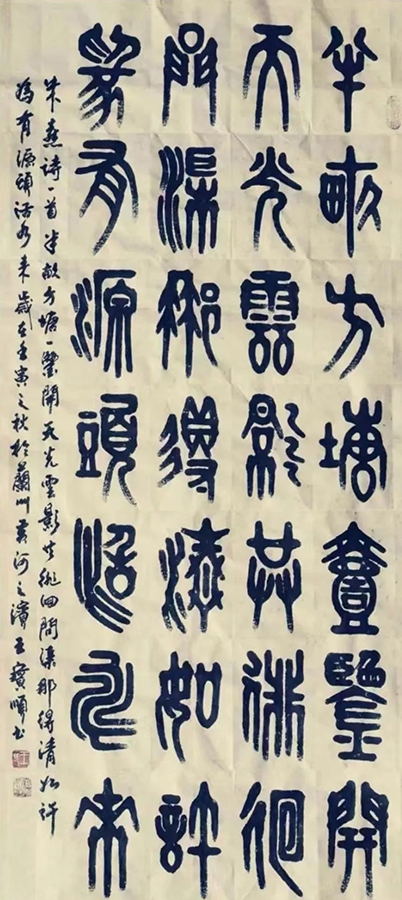 半畝方塘壹鑒開
天光雲影共徘徊
問渠那得清如許
為有源頭活水來
朱熹詩一首半畝方塘一鑒開天光雲影共徘徊問渠那得清如許
為有源頭活水來歲在壬寅之秋於蘭州黃河之濱王寶順書